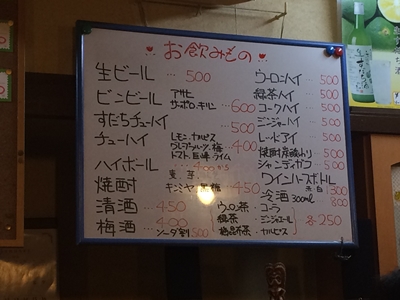 お飲みもの
生ビール … 500
ビンビール アサヒ サッポロ、キリン … 600
すだちチューハイ … 500
チューハイ レモン、カルピス
グレープフルーツ、梅 400
トマト、巨峰、ライム
ハイボール … 400から
焼酎 麦 芋
キンミヤ 黒糖 450
清酒 … 450
梅酒 … 400
ソーダ割 500
ウーロンハイ 500
緑茶ハイ 500
コークハイ 500
ジンジャーハイ 500
レッドアイ 500
焼酎炭酸わり 500
シャンディガフ 500
ワインハーフボトル
赤・白 1300
冷酒 300ml 800
ウーロン茶 コーラ
緑茶 ジンジャエール 各250
カルピス